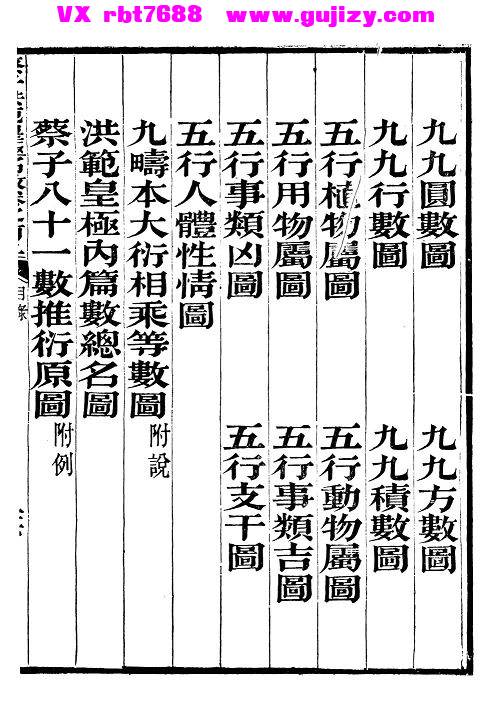 VX rbt7688 www.gujizy.com
九九圓數圖 九九方數圖
九九行數圖 九九積數圖
五行植物屬圖 五行動物屬圖
五行用物屬圖 五行事類吉圖
五行事類凶圖 五行支干圖
五行人體性情圖
九疇本大衍相乘等數圖 附說
洪範皇極內篇數總名圖
蔡子八十一數推衍原圖 附例
目錄